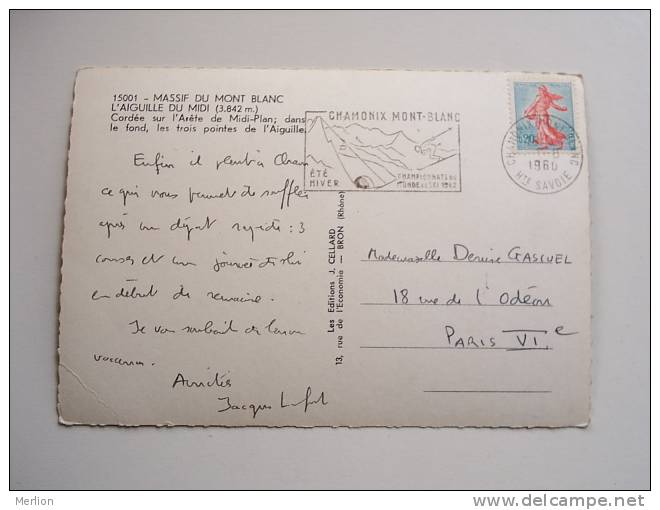 15001 - MASSIF DU MONT BLANC
L'AIGUILLE DU MIDI (3.842 m.)
Cordée sur l'Arête de Midi-Plan; dans
le fond, les trois pointes de l'Aiguille.
Enfin il pleut à Cham
ce qui vous permet de souffler
après un départ rapide : 3
courses et une journée de ski
en début de semaine.
Je vous souhaite de bonnes
vacances
Amitiés
Jacques
Les Editions J. CELLARD
13, rue de l'Economie — BRON (Rhône)
CHAMONIX MONT-BLANC
ÉTÉ
HIVER
CHAMPIONNATS DU
MONDE DE SKI 1962
CHAMONIX MONT-BLANC
1960
HTE SAVOIE
0,20
Mademoiselle Denise GASCUEL
18 rue de l'Odéon
PARIS VI e
Merlion
www.delcampe.net